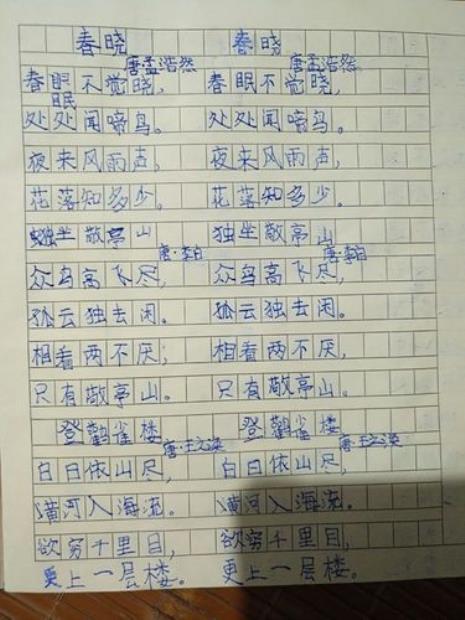 春晓 春晓
唐·孟浩然 唐·孟浩然
春眠不觉晓, 春眠不觉晓,
眠
处处闻啼鸟。 处处闻啼鸟。
夜来风雨声, 夜来风雨声,
花落知多少。 花落知多少。
独坐敬亭山 独坐敬亭山
唐·李白 唐·李白
众鸟高飞尽, 众鸟高飞尽,
孤云独去闲。 孤云独去闲。
相看两不厌; 相看两不厌,
只有敬亭山。 只有敬亭山。
登鹳雀楼 登鹳雀楼
唐·王之涣 唐·王之涣
白日依山尽, 白日依山尽,
黄河入海流。 黄河入海流。
欲穷千里目, 欲穷千里目,
更上一层楼。 更上一层楼。